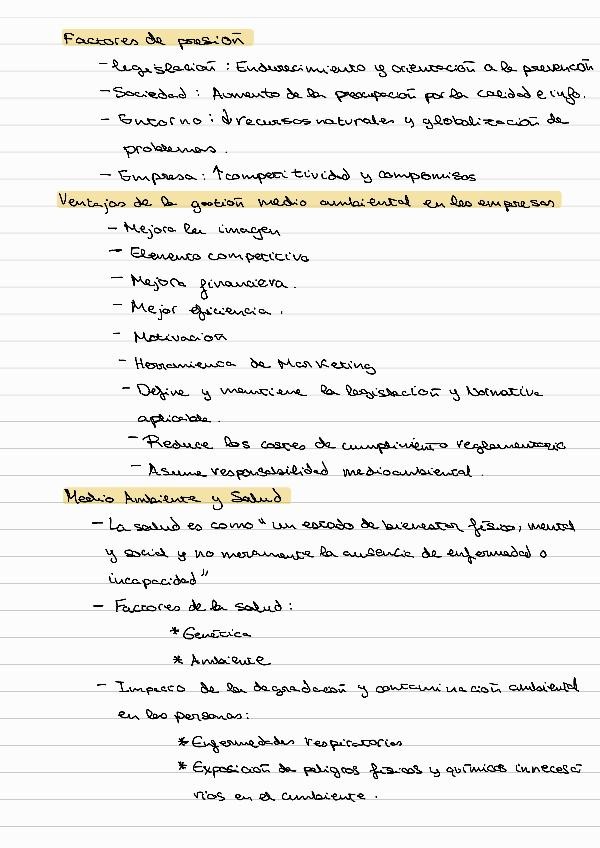 Factores de presión
- legislación : Endurecimiento y orientación a la prevención
- Sociedad : Aumento de la preocupación por la calidad e info.
- Entorno : ↓ recursos naturales y globalización de
problemas.
- Empresa : ↑ competitividad y compromisos
Ventajas de la gestión medio ambiental en las empresas
- Mejora la imagen
- Elemento competitivo
- Mejora financiera.
- Mejor eficiencia.
- Motivación
- Herramienta de Marketing
- Define y mantiene la legislación y Normativa
aplicable.
- Reduce los costes de cumplimiento reglamentario
- Asume responsabilidad medioambiental.
Medio Ambiente y Salud
- La salud es como " un estado de bienestar físico, mental
y social y no meramente la ausencia de enfermedad o
incapacidad"
- Factores de la salud :
* Genética
* Ambiente
- Impacto de la degradación y contaminación ambiental
en las personas:
* Enfermedades respiratorias
* Exposición de peligros físicos y químicos innecesa
rios en el ambiente.